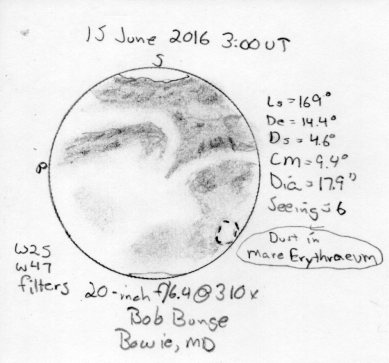 15 June 2016 3:00 UT
S
P
Ls = 169°
De = 14.4°
Ds = 4.6°
CM = 9.4°
Dia = 17.9"
Seeing = 6
Dust in
Mare Erythraeum
W25
W47
filters
20-inch f/6.4 @ 310x
Bob Bunge
Bowie, MD